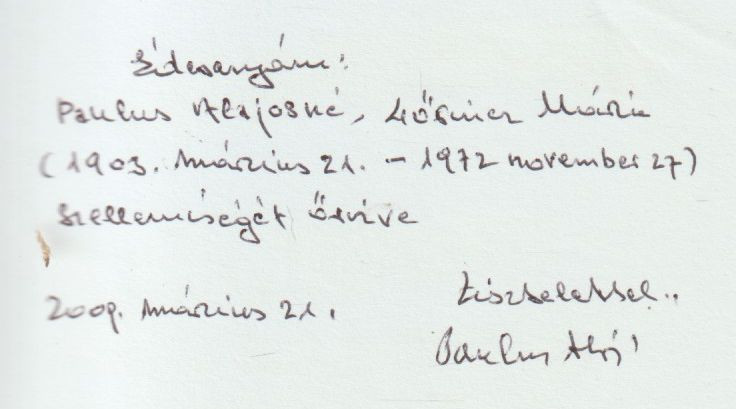 Édesanyám:
Paulus Alajosné, Lőrincz Mária
(1903. március 21. – 1972 november 27)
Szellemiségét őrizve
2009. március 21. Tisztelettel..
Paulus Alajos